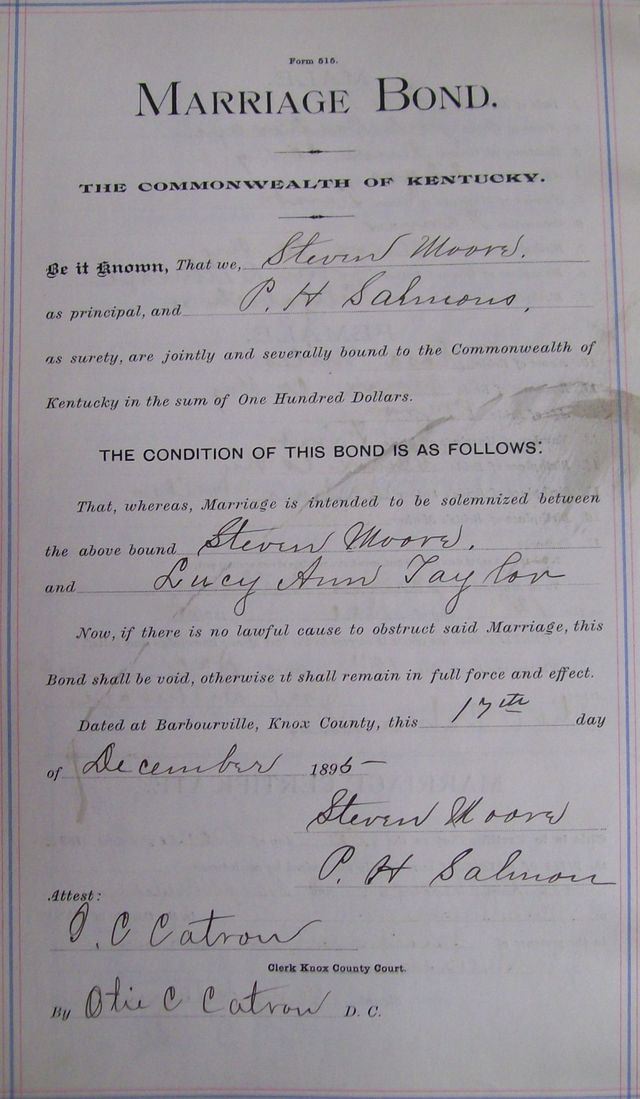 Form 515.
MARRIAGE BOND.
THE COMMONWEALTH OF KENTUCKY.
Be it Known, That we, Steven Moore.
as principal, and P. H Salmons,
as surety, are jointly and severally bound to the Commonwealth of
Kentucky in the sum of One Hundred Dollars.
THE CONDITION OF THIS BOND IS AS FOLLOWS:
That, whereas, Marriage is intended to be solemnized between
the above bound Steven Moore.
and Lucy Ann Taylor
Now, if there is no lawful cause to obstruct said Marriage, this
Bond shall be void, otherwise it shall remain in full force and effect.
Dated at Barbourville, Knox County, this 17th day
of December 1895
Steven Moore
P. H Salmon
Attest:
C Catron
Clerk Knox County Court.
By Otie C Catron D. C.